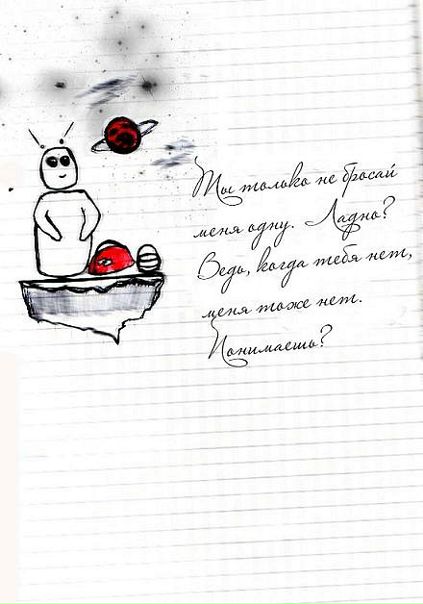 Ты только не бросай
меня одну. Ладно?
Ведь, когда тебя нет,
меня тоже нет.
Понимаешь?